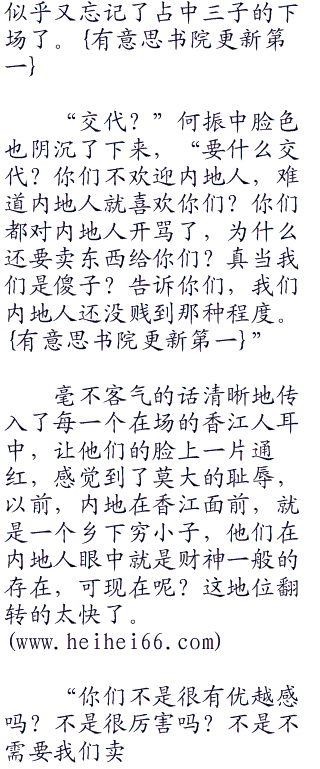 似乎又忘记了占中三子的下
场了。{有意思书院更新第
一}
“交代？”何振中脸色
也阴沉了下来，“要什么交
代？你们不欢迎内地人，难
道内地人就喜欢你们？你们
都对内地人开骂了，为什么
还要卖东西给你们？真当我
们是傻子？告诉你们，我们
内地人还没贱到那种程度。
{有意思书院更新第一}”
毫不客气的话清晰地传
入了每一个在场的香江人耳
中，让他们的脸上一片通
红，感觉到了莫大的耻辱，
以前，内地在香江面前，就
是一个乡下穷小子，他们在
内地人眼中就是财神一般的
存在，可现在呢？这地位翻
转的太快了。
(www.heihei66.com)
“你们不是很有优越感
吗？不是很厉害吗？不是不
需要我们卖